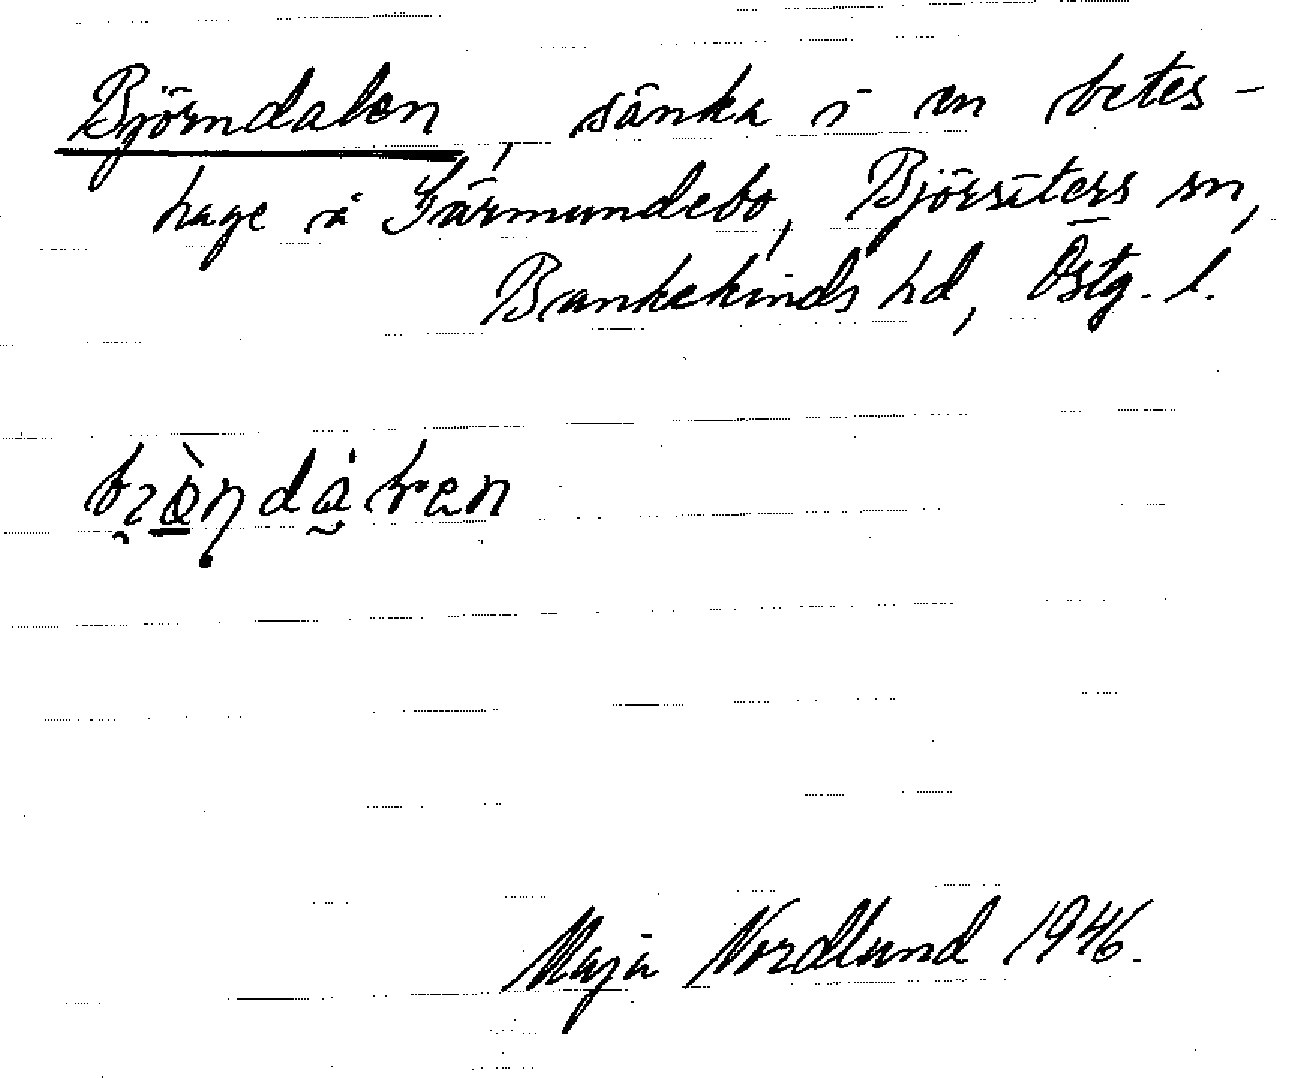 Björndalen, sänka i en betes-
hage å Färmundebo, Björsäters sn,
Bankekinds hd, Östg. l.
Maja Nordlund 1946.